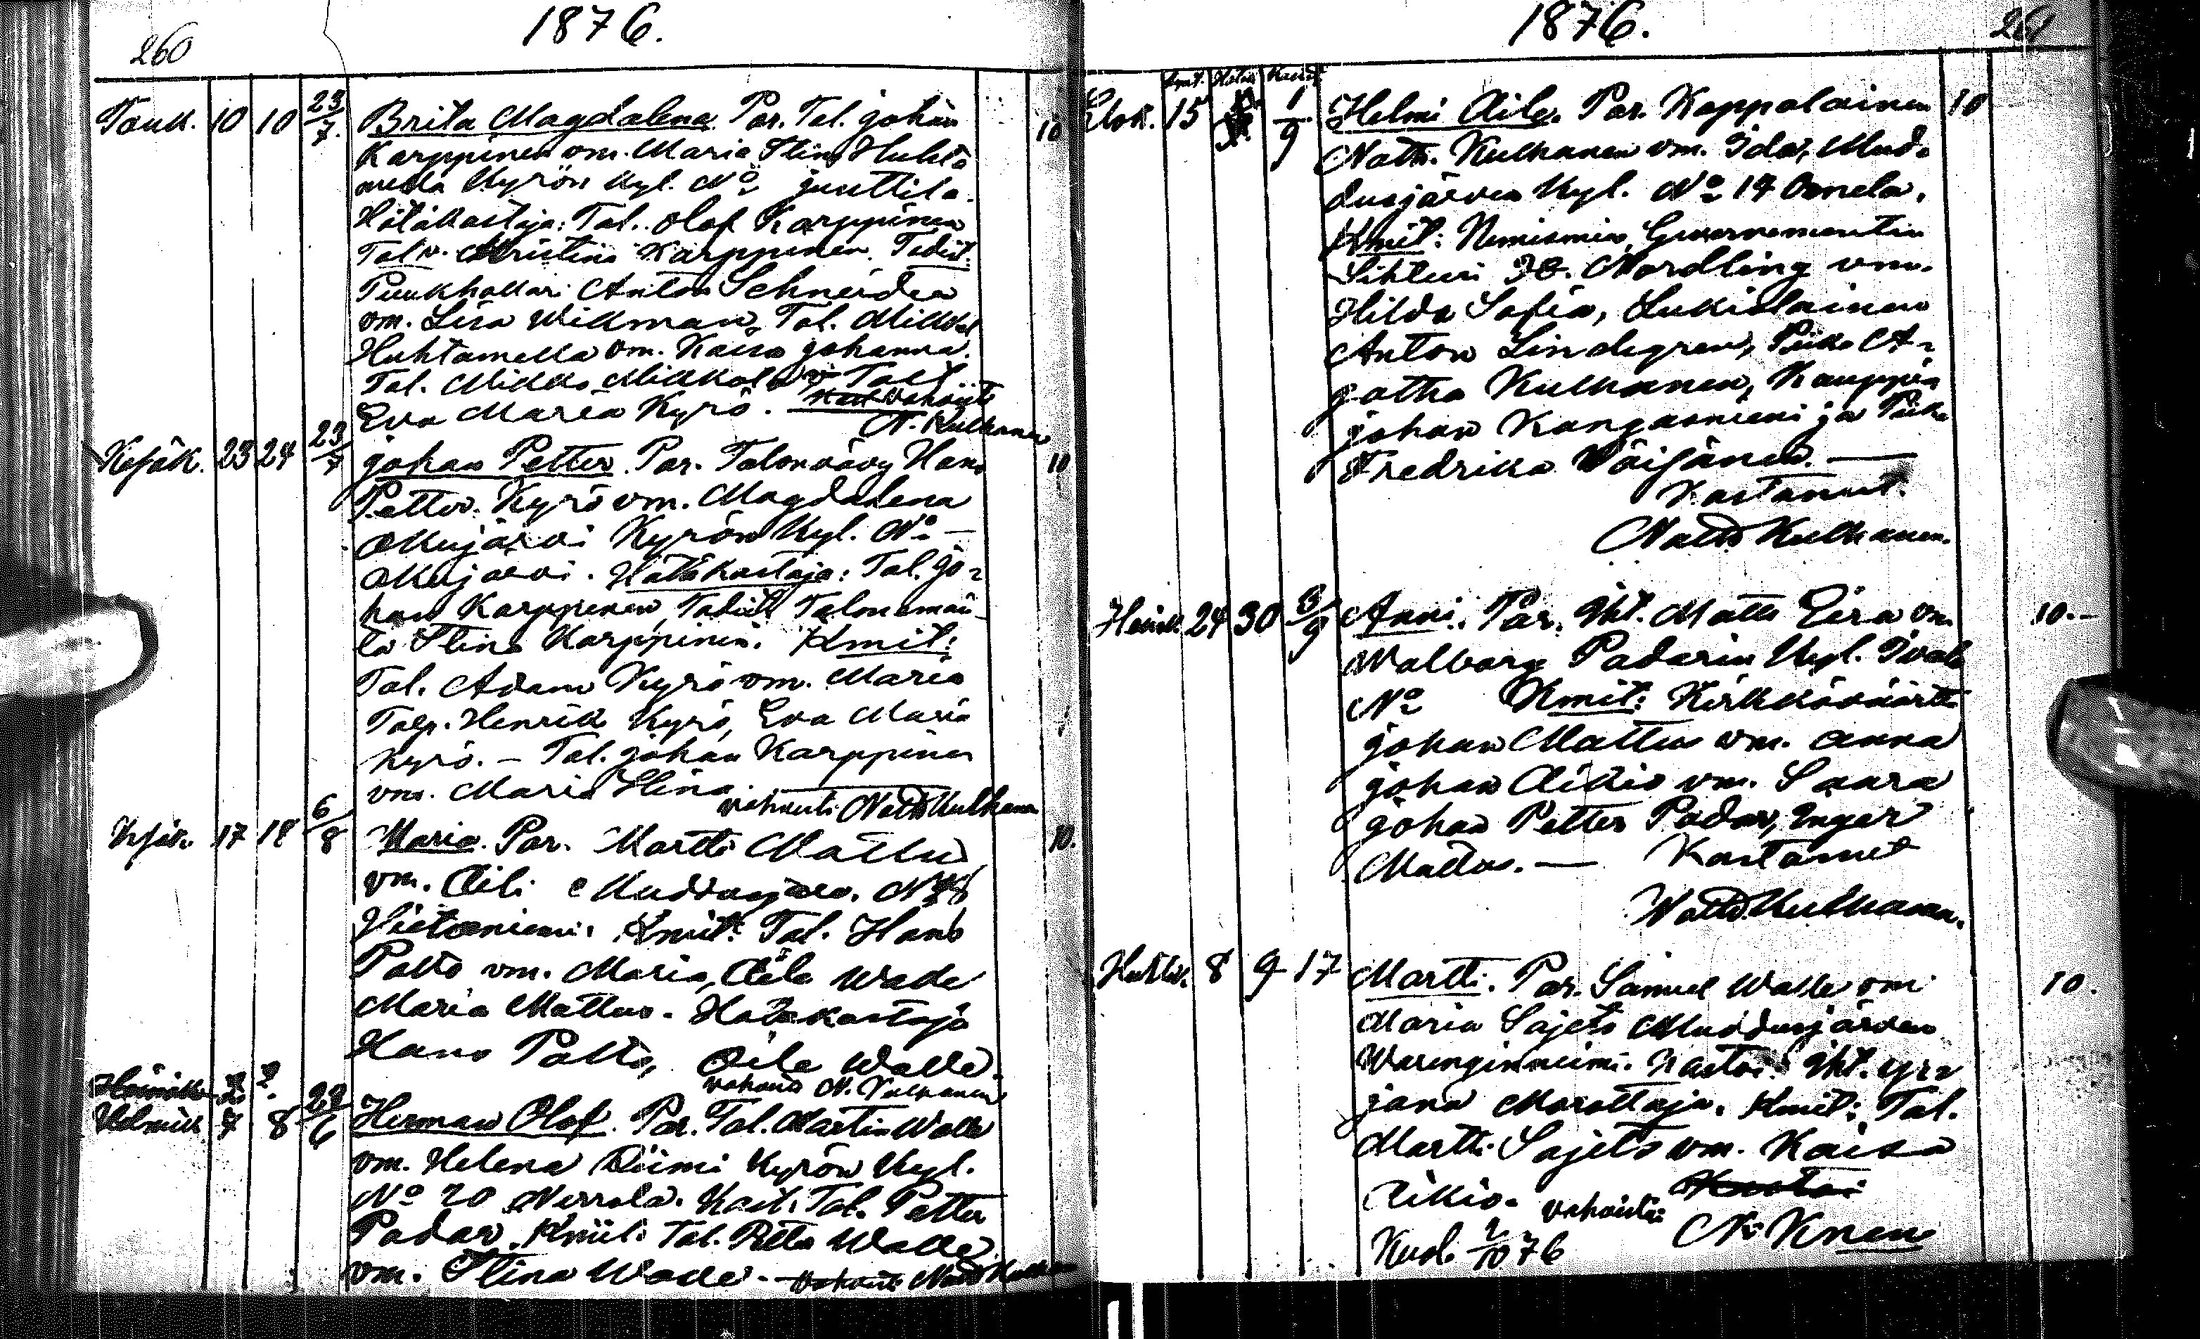 260
1876.
Touk. 10 10 23/7. Brita Magdalena. Par. Tal. Johan 10
Karppinen vm. Maria Stina Huhta
mella Kyrön Kyl. No Juuttila.
Hätäkastaja: Tal. Olof Karppinen
Talv. Kristina Karppinen. Todist.
Anton Schneider
vm. Lisa Wikman, Tal. Mikkel
Huhtamella vm. Kaisa Johanna.
Tal. Mikko Mikkola
Eva Maria Kyrö. vahvisti
N. Kulhanen
Kesäk. 23 24 23/7 Johan Petter. Par. Talonvävy Hans 10
Petter Kyrö vm. Magdalena
Mujärvi Kyrön Kyl. No –
Akujärvi. Hätäkastaja: Tal. Jo-
han Karppinen, Todist. Talonemän-
tä Stina Karppinen. Kmit:
Tal. Adam Kyrö vm. Maria
Talp. Henrik Kyrö, Eva Maria
Kyrö. – Tal. Johan Karppinen
vm. Maria Stina.
vahvisti Natth Kulhanen
Kesäk. 17 18 6/8 Maria. Par. Martti Mattus 10.
vm. Aili Muddusjärv. No 8
Hietaniemi. Kmit: Tal. Hans
Palto vm. Maria, Aile Walle
Maria Mattus. Hätäkastaja
Hans Palto, Aile Walle.
vahvisti N. Kulhanen
Heinäk. 2 2.
Helmik. 7 8 22/6 Herman Olof. Par. Tal. Martin Walle
vm. Helena Kyrön Kyl.
No 20 Nerrola. Kast. Tal. Petter
Padar. Kmit: Tal. Petter Walle
vm. Stina Walle. – vahvisti Natth Kulhanen
1876.
261
Kmit. Kaste
Elok. 15 1/9 Helmi Aile. Par. Kappalainen 10
Natth. Kulhanen vm. Ida, Mud-
dusjärven Kyl. No 14 Onnela.
Kmit: Nimismies, Guvernementin
Sihteri Nordling vm.
Hilda Sofia, Lukiolainen
Anton Lindegren, Piika A-
gatha Kulhanen, Kauppias
Johan Kangasniemi ja Piika
Fredrika Väisänen. –
Kastanut.
Natth Kulhanen.
Heinäk. 24 30 3/9 Anni. Par. Iht. Matti Eira vm. 10.–
Walborg Padarin Kyl. Ivalo
No Kmit: Kirkkoväärtti
Johan Mattus vm. Anna
Johan Aikio vm. Saara
Johan Petter Padar, Inger
Mattus. – Kastanut
Natth Kulhanen.
Huhtik. 8 9 17 Martti. Par. Samuel Walle vm. 10.
Maria Sajets Muddusjärven
Waringinniemi. Kastoi: Iht. Yr-
jänä Morottaja. Kmit: Tal.
Martti Sajets vm. Kaisa
Aikio. vahvisti: Kastoi
N. Knen
Kuol. 2/10 76